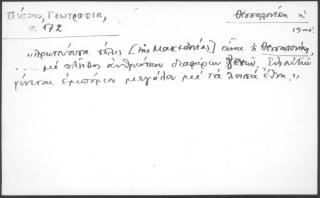 Πύρρου, Γεωγραφία, Θεσσαλονίκη ἡ
σ. 172 19 αἰ.
"Πρωτεύουσα πόλις [τῆς Μακεδονίας] εἶναι ἡ Θεσσαλονίκη,
.... μὲ πλῆθος ἀνθρώπων διαφόρων γενῶν,
γίνεται ἐμπόριον μεγάλον μὲ τὰ λοιπὰ ἔθνη."